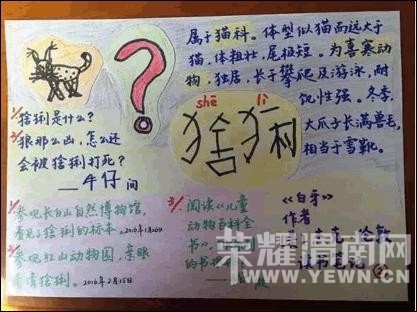 属于猫科。体型似猫而远大于
猫，体粗壮，尾极短。为喜寒动
物，独居，长于攀爬及游泳，耐
饥性强。冬季，
大爪子长满兽毛，
相当于雪靴。
?
shē lì
猞猁
1/猞猁是什么？
2/狼那么凶，怎么还
会被猞猁打死？
——牛仔问
1/参观长白山自然博物馆，
看见了猞猁的标本。2016年1月26日
2/参观红山动物园，亲眼
看清猞猁。2016年2月15日
3/阅读《儿童
动物百科全
书》
的书
《白牙》
作者
杰克·伦敦
荣耀渭南网
WWW.YEWN.CN